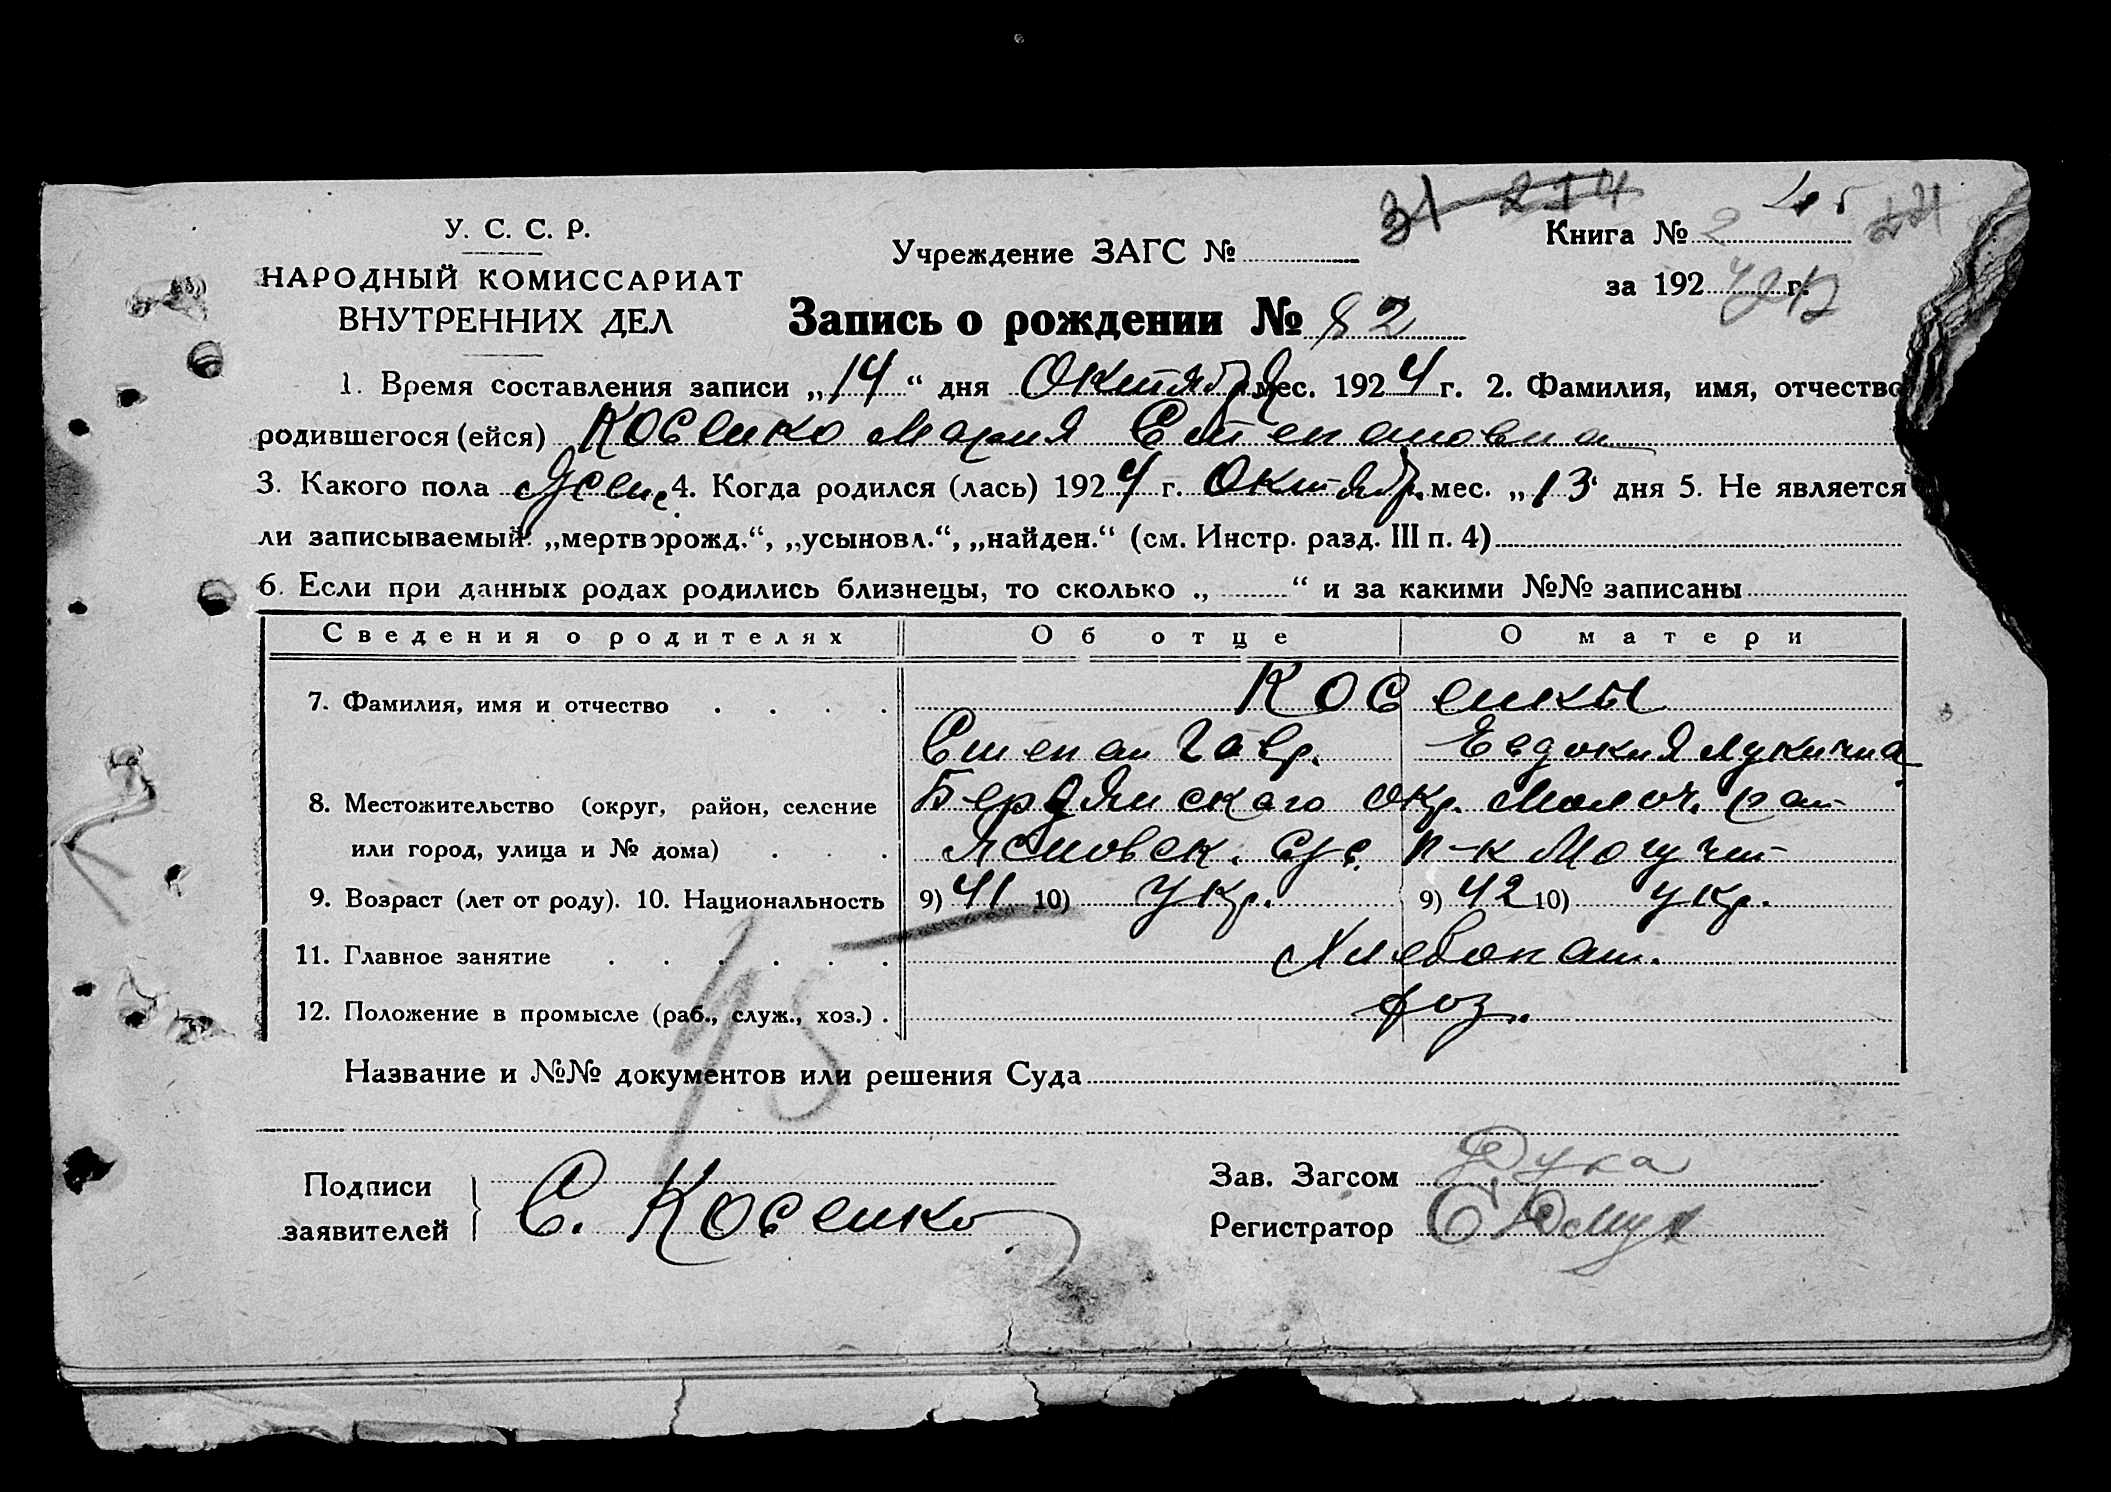 31 214 45
У. С. С. Р.
НАРОДНЫЙ КОМИССАРИАТ
ВНУТРЕННИХ ДЕЛ
Учреждение ЗАГС №
Книга № 2
за 192 4 г.
Запись о рождении № 82
1. Время составления записи „14“ дня Октября мес. 1924 г. 2. Фамилия, имя, отчество
родившегося (ейся) Косенко Мария Степановна
3. Какого пола жен. 4. Когда родился (лась) 1924 г. Октябр. мес. „13“ дня 5. Не является
ли записываемый: „мертворожд.“, „усыновл.“, „найден.“ (см. Инстр. разд. III п. 4)
6. Если при данных родах родились близнецы, то сколько „ “ и за какими №№ записаны
Сведения о родителях Об отце О матери
7. Фамилия, имя и отчество . . . . Косенкы
Степан Гавр. Евдокия Лукична
8. Местожительство (округ, район, селение Бердянскаго окр. Молоч. рай
или город, улица и № дома) . . . с/с п-к Могучий
9. Возраст (лет от роду). 10. Национальность 9) 41 10) Укр. 9) 42 10) Укр.
11. Главное занятие . . . . . . Хлебопаш.
12. Положение в промысле (раб., служ., хоз.) . хоз.
45
Название и №№ документов или решения Суда
Подписи
заявителей
С. Косенко
Зав. Загсом
Регистратор